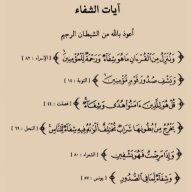 آيات الشفاء
أعوذ بالله من الشيطان الرجيم
﴿وَنُنَزِّلُ مِنَ الْقُرْءَانِ مَا هُوَ شِفَاءٌ وَرَحْمَةٌ لِلْمُؤْمِنِينَ﴾ [الإسراء : ٨٢]
﴿وَيَشْفِ صُدُورَ قَوْمٍ مُؤْمِنِينَ﴾ [التوبة : ١٤]
﴿قُلْ هُوَ لِلَّذِينَ ءَامَنُوا هُدًى وَشِفَاءٌ﴾ [فصلت : ٤٤]
﴿يَخْرُجُ مِنْ بُطُونِهَا شَرَابٌ مُخْتَلِفٌ أَلْوَانُهُ فِيهِ شِفَاءٌ لِلنَّاسِ﴾ [النحل : ٦٩]
﴿وَإِذَا مَرِضْتُ فَهُوَ يَشْفِينِ﴾ [الشعراء : ٨٠]
﴿وَشِفَاءٌ لِمَا فِي الصُّدُورِ﴾ [يونس : ٥٧]